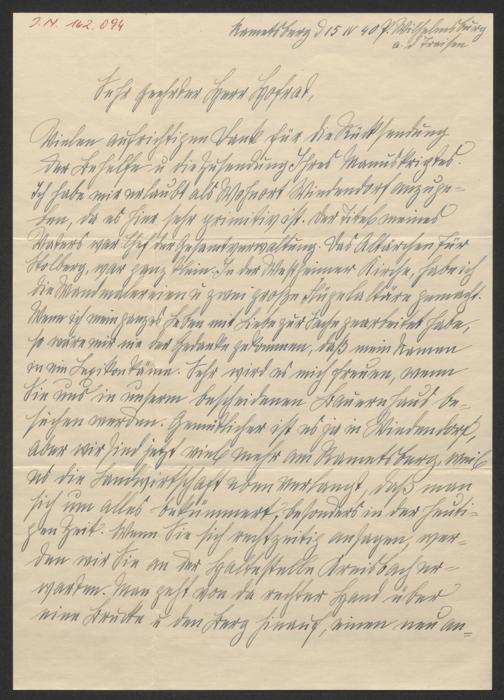 J.N. 162.094
Rametsberg d 15 IV 40 P. Wilhelmsburg
a. d Traisen
Sehr geehrter Herr Hofrat,
Vielen aufrichtigen Dank für die Rücksendung
der Behelfe u die Zusendung Ihres Manuskriptes.
Ich habe mir erlaubt als Wohnort Windendorf anzuge-
ben, da es hier sehr primitiv ist. Der Titel meines
Vaters war Chef der Gesamtverwaltung. Das Altarchen für
Stolberg, war ganz klein. In der Westheimer Kirche, habe ich
die Wandmalereien u zwei große Flügelaltäre gemacht.
Wenn ich mein ganzes Leben mit Liebe zur Sache gearbeitet habe,
so wäre mir nie der Gedanke gekommen, daß mein Namen
in ein Lexikon käme. Sehr wird es mich freuen, wenn
Sie uns in unserm bescheidenen Bauernhaus be-
suchen werden. Gemütlicher ist es ja in Windendorf,
aber wir sind jetzt viel mehr am Rametsberg, weil
es die Landwirtschaft eben verlangt, daß man
sich um alles bekümmert, besonders in der heuti-
gen Zeit. Wenn Sie sich rechtzeitig ansagen, wer-
den wir Sie an der Haltestelle Kreisbach er-
warten. Man geht von da rechter Hand über
eine Brücke u den Berg hinauf, einen neu an-